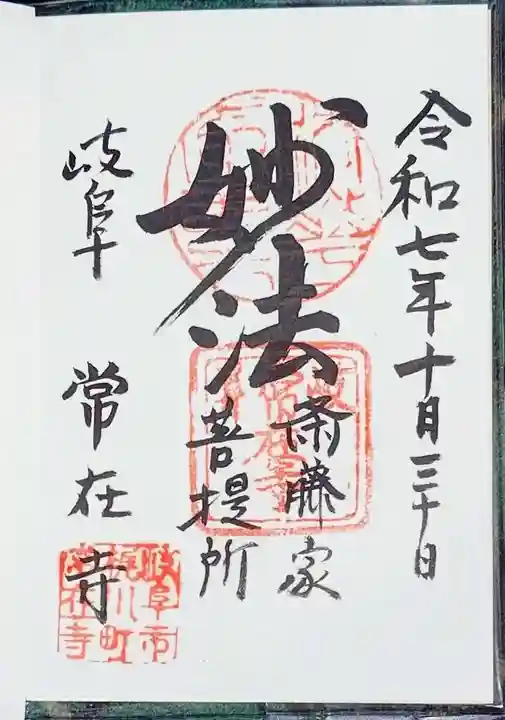 令和七年十月三十日
妙法
斎藤家
菩提所
岐阜 常在寺
岐阜市
梶川町
常在寺